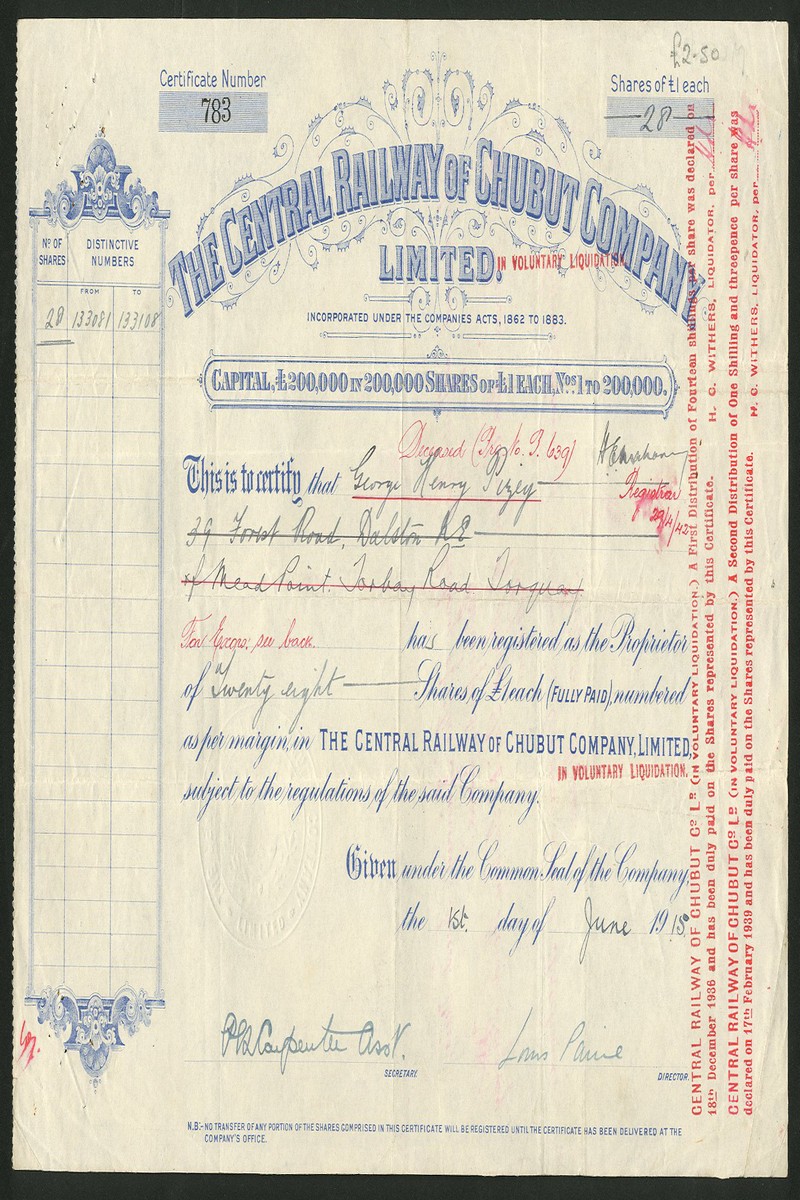 £2-50
Certificate Number
783
Shares of £1 each
28
THE CENTRAL RAILWAY OF CHUBUT COMPANY
LIMITED.
IN VOLUNTARY LIQUIDATION.
INCORPORATED UNDER THE COMPANIES ACTS, 1862 TO 1883.
CAPITAL, £200,000 IN 200,000 SHARES OF £1 EACH, Nos. 1 TO 200,000.
No OF SHARES
DISTINCTIVE NUMBERS
FROM TO
28 133081 133108
Deceased
This is to certify that George Henry Pizey
Registrar
29/4/42
39 Forest Road, Dalston N.E
of Mead Point. Torbay Road Torquay
For Exors, see back. has been registered as the Proprietor
of Twenty eight Shares of £1 each (FULLY PAID), numbered
as per margin, in THE CENTRAL RAILWAY OF CHUBUT COMPANY, LIMITED,
IN VOLUNTARY LIQUIDATION.
subject to the regulations of the said Company.
Given under the Common Seal of the Company,
the 1st. day of June 1915
LIMITED
Carpenter Asst.
SECRETARY.
Louis Paine
DIRECTOR.
N.B:- NO TRANSFER OF ANY PORTION OF THE SHARES COMPRISED IN THIS CERTIFICATE WILL BE REGISTERED UNTIL THE CERTIFICATE HAS BEEN DELIVERED AT THE
COMPANY'S OFFICE.
CENTRAL RAILWAY OF CHUBUT Co Ld (IN VOLUNTARY LIQUIDATION.) A First Distribution of Fourteen shillings per share was declared on
18th December 1936 and has been duly paid on the Shares represented by this Certificate. H. C. WITHERS, LIQUIDATOR, per
CENTRAL RAILWAY OF CHUBUT Co Ld (IN VOLUNTARY LIQUIDATION.) A Second Distribution of One Shilling and threepence per share was
declared on 17th February 1939 and has been duly paid on the Shares represented by this Certificate. H. C. WITHERS, LIQUIDATOR, per